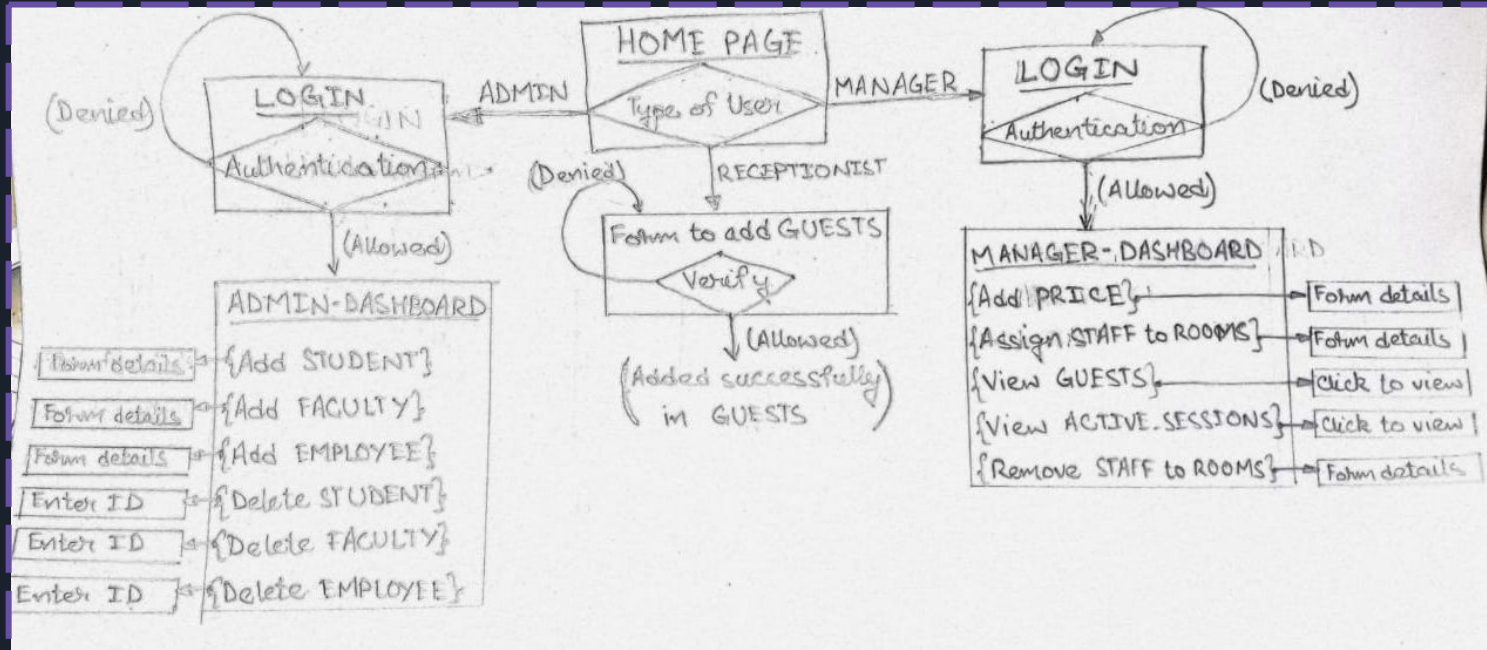 HOME PAGE
Type of User
ADMIN
MANAGER
RECEPTIONIST
LOGIN
Authentication
(Denied)
(Allowed)
ADMIN-DASHBOARD
{Add STUDENT}
Form details
{Add FACULTY}
Form details
{Add EMPLOYEE}
Form details
{Delete STUDENT}
Enter ID
{Delete FACULTY}
Enter ID
{Delete EMPLOYEE}
Enter ID
(Denied)
Form to add GUESTS
Verify
(Allowed)
(Added successfully
in GUESTS)
LOGIN
Authentication
(Denied)
(Allowed)
MANAGER-DASHBOARD
{Add PRICE}
Form details
{Assign STAFF to ROOMS}
Form details
{View GUESTS}
Click to view
{View ACTIVE-SESSIONS}
Click to view
{Remove STAFF to ROOMS}
Form details